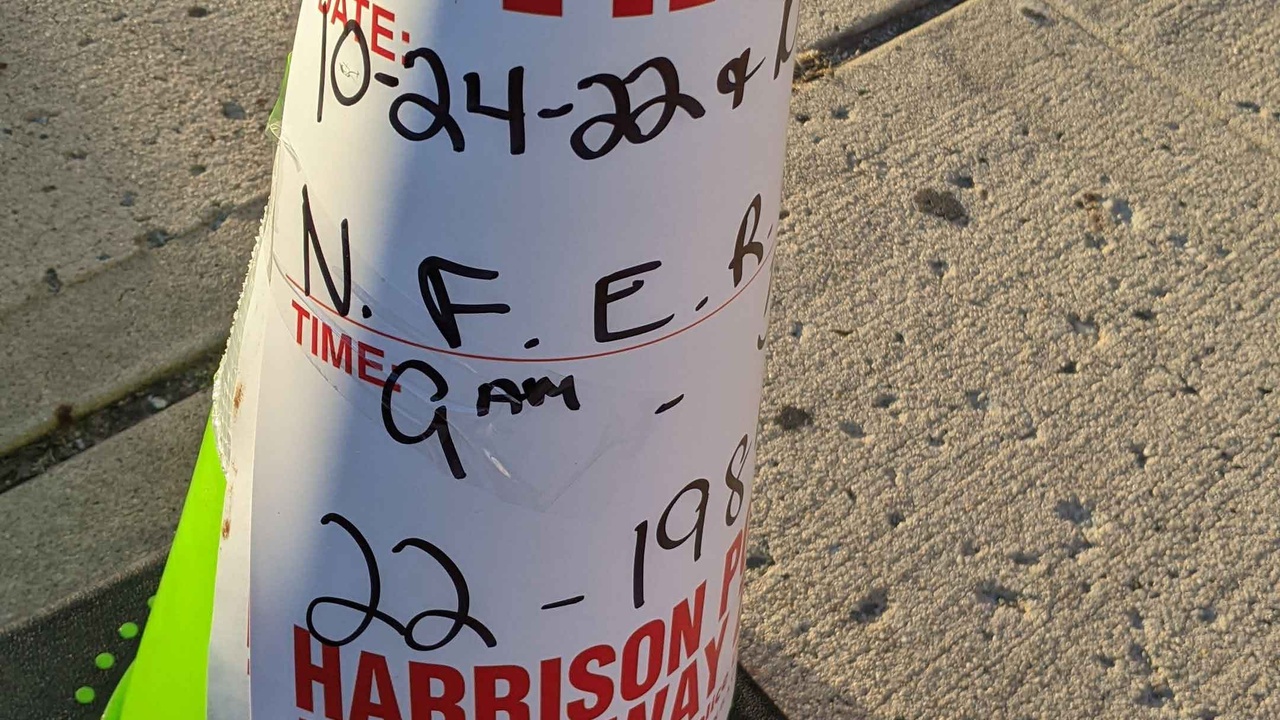 DATE:
10-24-22 &
N. F. E. R.
TIME:
9 AM -
22 - 198
HARRISON
WAY